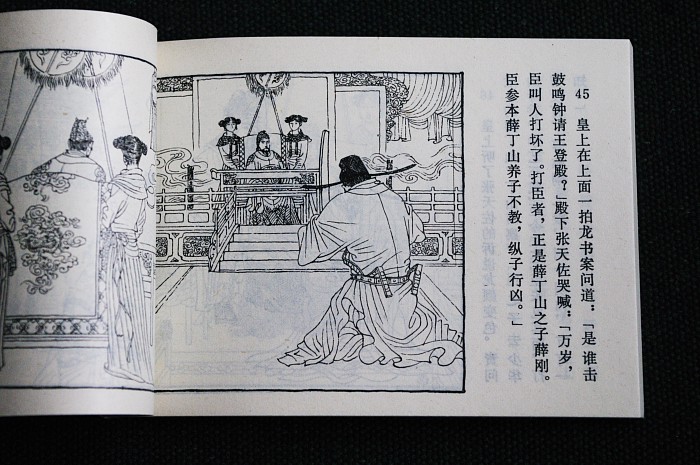 45 皇上在上面一拍龙书案问道：「是谁击
鼓鸣钟请王登殿？」殿下张天佐哭喊：「万岁，
臣叫人打坏了。打臣者，正是薛丁山之子薛刚。
臣参本薛丁山养子不教，纵子行凶。」